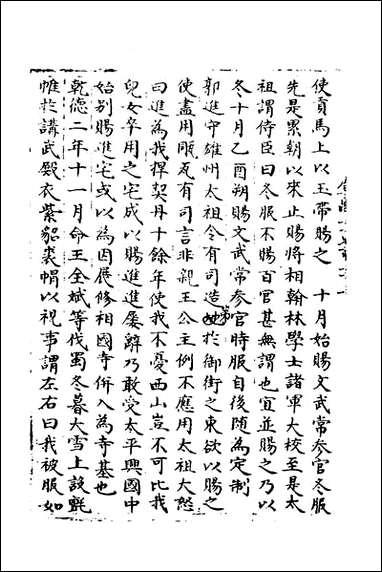 使貢馬上以玉帶賜之　十月始賜文武常參官冬服
先是累朝以來止賜將相翰林學士諸軍大校至是太
祖謂侍臣曰冬服不賜百官甚無謂也宜並賜之乃以
冬十月乙酉朔賜文武常參官時服自後隨為定制
郭進守雄州太祖令有司造第於御街之東欲以賜之
使盡用㼧瓦有司言非親王公主例不應用太祖大怒
曰進為我捍契丹十餘年使我不憂西山豈不可比我
兒女卒用之宅成以賜進進屢辭乃敢受太平興國中
始别賜進宅或以為因展修相國寺併入為寺基也
乾德二年十一月命王全斌等伐蜀冬暮大雪上設氈
帷於講武殿衣紫貂裘帽以視事謂左右曰我被服如